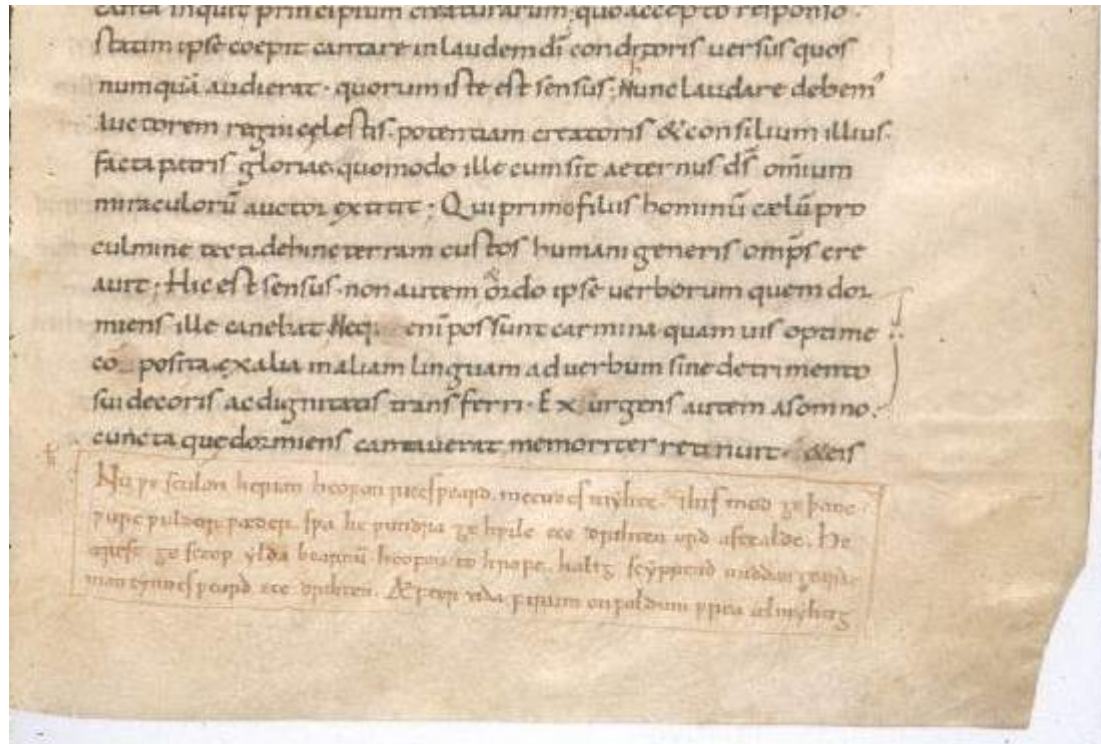 canta inquit principium creaturarum; quo accepto responso.
statim ipse coepit cantare in laudem dī conditoris uersus quos
numquā audierat. quorum iste est sensus; Nunc laudare debem᾽
auctorem regni cęlestis. potentiam creatoris & consilium illius.
facta patris gloriae. quomodo ille cum sit aeternus ds̄ omīum
miraculorū auctor extitit; Qui primo filiis hominū cælū pro
culmine tecti. dehinc terram custos humani generis omp̄s cre
auit; Hic est sensus. non autem ordo ipse uerborum quem dor
miens ille canebat. Neque enī possunt carmina quamuis optime
co posita. ex alia in aliam linguam ad uerbum sine detrimento
sui decoris ac dignitatis transferri. Exurgens autem a somno.
cuncta que dormiens cantauerat memoriter retinuit. & eis
Nu ƿe sculon herian heofon ricesƿeard. metudes myhte. his mod geþanc.
ƿurc ƿuldor fæder. sƿa he ƿundra gehƿilc ece drihten ord astealde. He
ærest gescop ylda bearnū heofon to hrofe. halig scyppend middangearde
mancynnes ƿeard ece drihten. Æfter tida firum on foldum frea almyhtig